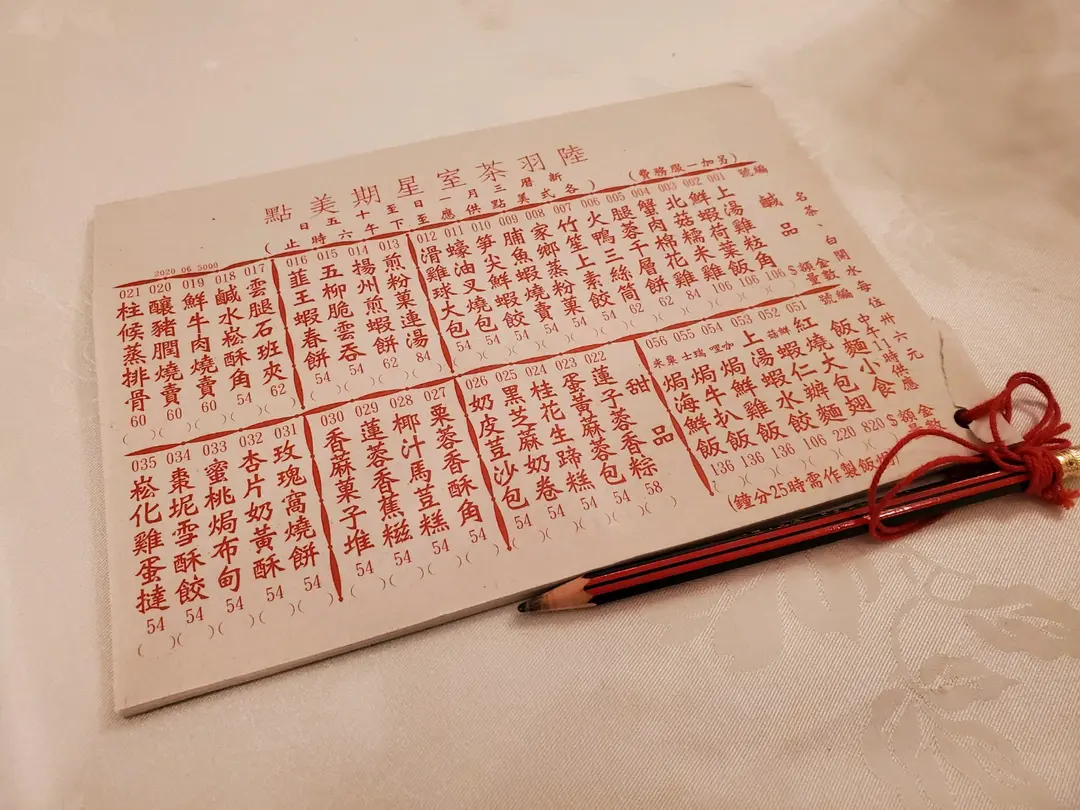 陸羽茶室星期美點
新曆三月一日至十五日
(各式美點供應至下午六時止)
(另加一服務費)
2020 06 5000
名茶、白開水每位卅六元
鹹品
編號 金額$ 數量
001 上湯雞粒角 106 ( )
002 鮮蝦荷葉飯 106 ( )
003 北菇糯米雞 106 ( )
004 蟹肉棉花雞 84 ( )
005 腿蓉千層餅 62 ( )
006 火鴨三絲筒 62 ( )
007 竹笙上素餃 54 ( )
008 家鄉蒸粉菓 54 ( )
009 脯魚蝦燒賣 54 ( )
010 筍尖鮮蝦餃 54 ( )
011 蠔油叉燒包 54 ( )
012 滑雞球大包 54 ( )
013 煎粉菓連湯 84 ( )
014 揚州煎蝦餅 62 ( )
015 五柳脆雲吞 54 ( )
016 韮王蝦春餅 54 ( )
017 雲腿石班夾 62 ( )
018 鹹水崧酥角 54 ( )
019 鮮牛肉燒賣 60 ( )
020 釀豬膶燒賣 60 ( )
021 柱候蒸排骨 60 ( )
中午11時供應
飯麵小食
編號 金額$
051 紅燒大包翅 820
052 鮮菇蝦仁辦麵 220
053 上湯蝦水餃 106
054 咖哩焗鮮雞飯 136
055 瑞士焗牛扒飯 136
056 粟米焗海鮮飯 136
製作需時25分鐘)
甜品
022 蓮子蓉香粽 58 ( )
023 蛋黃麻蓉包 54 ( )
024 桂花生蹄糕 54 ( )
025 黑芝麻奶卷 54 ( )
026 奶皮荳沙包 54 ( )
027 栗蓉香酥角 54 ( )
028 椰汁馬荳糕 54 ( )
029 蓮蓉香蕉糍 54 ( )
030 香麻菓子堆 54 ( )
031 玫瑰窩燒餅 54 ( )
032 杏片奶黃酥 54 ( )
033 蜜桃焗布甸 54 ( )
034 棗坭雪酥餃 54 ( )
035 崧化雞蛋撻 54 ( )